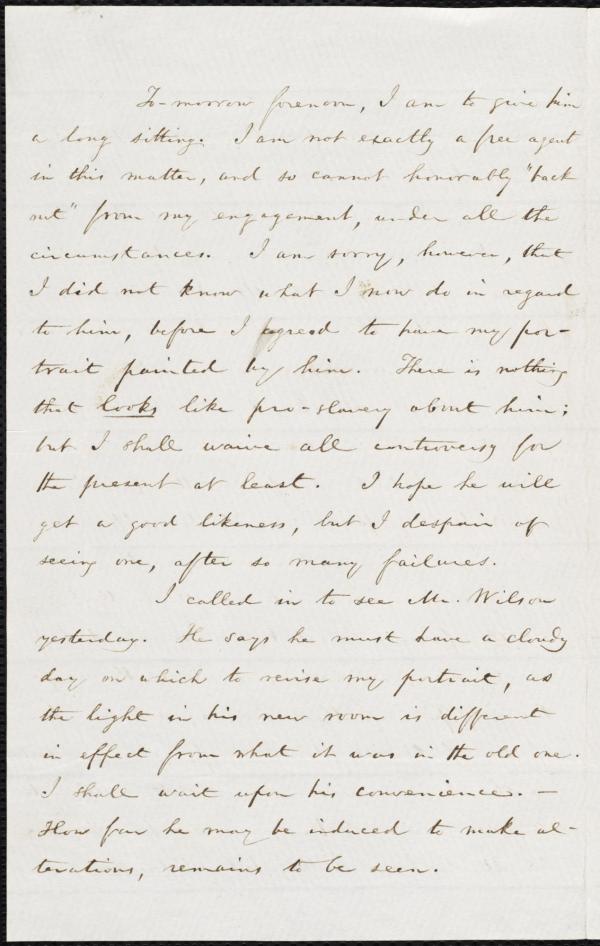 To-morrow forenoon, I am to give him
a long sitting. I am not exactly a free agent
in this matter, and so cannot honorably "back
out" from my engagement, under all the
circumstances. I am sorry, however, that
I did not know what I now do in regard
to him, before I agreed to have my por-
trait painted by him. There is nothing
that looks like pro-slavery about him;
but I shall waive all controversy for
the present at least. I hope he will
get a good likeness, but I despair of
seeing one, after so many failures.
I called in to see Mr. Wilson
yesterday. He says he must have a cloudy
day on which to revise my portrait, as
the light in his new room is different
in effect from what it was in the old one.
I shall wait upon his convenience. —
How far he may be induced to make al-
terations, remains to be seen.